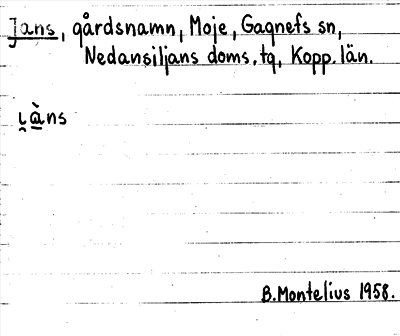 Jans, gårdsnamn, Moje, Gagnefs sn,
Nedansiljans doms. tg, Kopp. län.
i̯à̱ns
B. Montelius 1958.